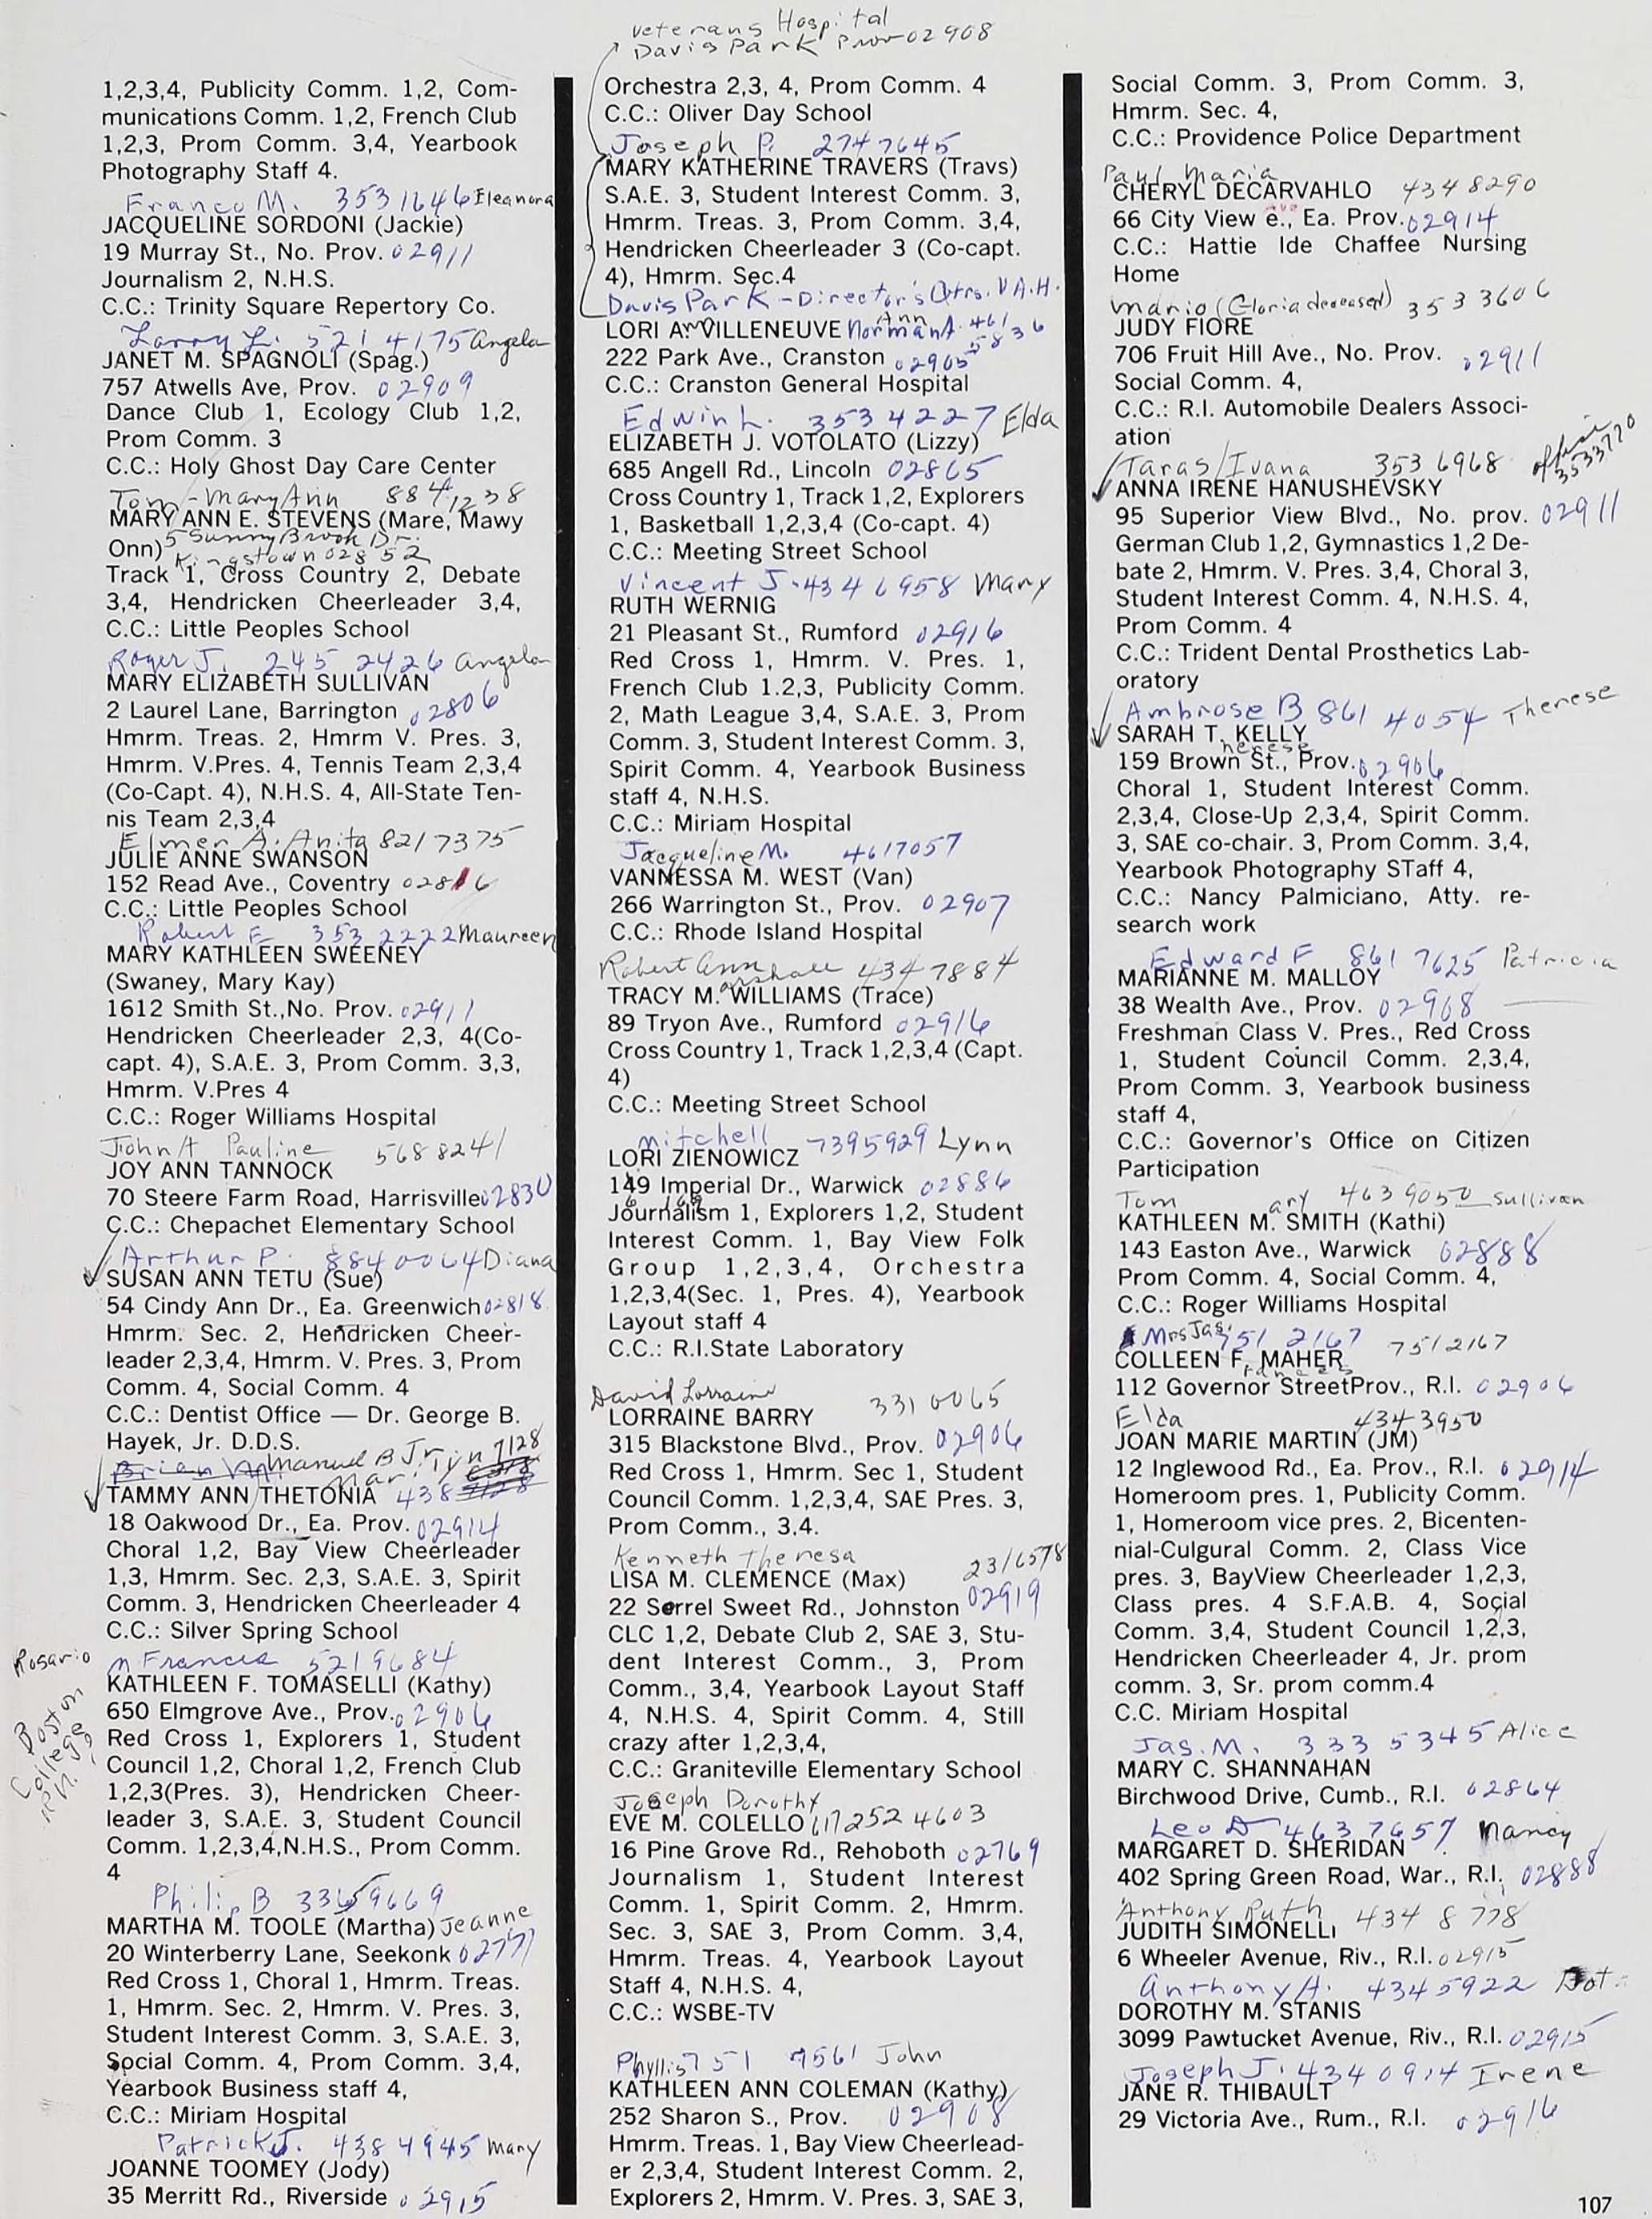 Veterans Hospital
Davis Park Prov 02908
1,2,3,4, Publicity Comm. 1,2, Com-
munications Comm. 1,2, French Club
1,2,3, Prom Comm. 3,4, Yearbook
Photography Staff 4.
Franco M. 353 1646 Eleanora
JACQUELINE SORDONI (Jackie)
19 Murray St., No. Prov. 02911
Journalism 2, N.H.S.
C.C.: Trinity Square Repertory Co.
Larry L. 521 4175 Angela
JANET M. SPAGNOLI (Spag.)
757 Atwells Ave, Prov. 02909
Dance Club 1, Ecology Club 1,2,
Prom Comm. 3
C.C.: Holy Ghost Day Care Center
Tom - Mary Ann 884 1238
MARY ANN E. STEVENS (Mare, Mawy
Onn) 5 Sunny Brook Dr.
Kingstown 02852
Track 1, Cross Country 2, Debate
3,4, Hendricken Cheerleader 3,4,
C.C.: Little Peoples School
Roger J. 245 2426 Angela
MARY ELIZABETH SULLIVAN
2 Laurel Lane, Barrington 02806
Hmrm. Treas. 2, Hmrm V. Pres. 3,
Hmrm. V.Pres. 4, Tennis Team 2,3,4
(Co-Capt. 4), N.H.S. 4, All-State Ten-
nis Team 2,3,4
Elmer A. Anita 821 7375
JULIE ANNE SWANSON
152 Read Ave., Coventry 02816
C.C.: Little Peoples School
Robert E 353 2222 Maureen
MARY KATHLEEN SWEENEY
(Swaney, Mary Kay)
1612 Smith St.,No. Prov. 02911
Hendricken Cheerleader 2,3, 4(Co-
capt. 4), S.A.E. 3, Prom Comm. 3,3,
Hmrm. V.Pres 4
C.C.: Roger Williams Hospital
John A Pauline 568 8241
JOY ANN TANNOCK
70 Steere Farm Road, Harrisville 02830
C.C.: Chepachet Elementary School
Arthur P. 884 0064 Diana
SUSAN ANN TETU (Sue)
54 Cindy Ann Dr., Ea. Greenwich 02818
Hmrm. Sec. 2, Hendricken Cheer-
leader 2,3,4, Hmrm. V. Pres. 3, Prom
Comm. 4, Social Comm. 4
C.C.: Dentist Office — Dr. George B.
Hayek, Jr. D.D.S.
Brian M. Manuel B Jr. 7128
Marilyn
TAMMY ANN THETONIA 438
18 Oakwood Dr., Ea. Prov. 02914
Choral 1,2, Bay View Cheerleader
1,3, Hmrm. Sec. 2,3, S.A.E. 3, Spirit
Comm. 3, Hendricken Cheerleader 4
C.C.: Silver Spring School
Rosario M Frances 521 9684
KATHLEEN F. TOMASELLI (Kathy)
650 Elmgrove Ave., Prov. 02906
Boston College
Red Cross 1, Explorers 1, Student
Council 1,2, Choral 1,2, French Club
1,2,3(Pres. 3), Hendricken Cheer-
leader 3, S.A.E. 3, Student Council
Comm. 1,2,3,4,N.H.S., Prom Comm.
4
Philip B 336 9669
MARTHA M. TOOLE (Martha) Jeanne
20 Winterberry Lane, Seekonk 02771
Red Cross 1, Choral 1, Hmrm. Treas.
1, Hmrm. Sec. 2, Hmrm. V. Pres. 3,
Student Interest Comm. 3, S.A.E. 3,
Social Comm. 4, Prom Comm. 3,4,
Yearbook Business staff 4,
C.C.: Miriam Hospital
Patrick J. 438 4945 Mary
JOANNE TOOMEY (Jody)
35 Merritt Rd., Riverside 02915
Orchestra 2,3, 4, Prom Comm. 4
C.C.: Oliver Day School
Joseph P. 274 7645
MARY KATHERINE TRAVERS (Travs)
S.A.E. 3, Student Interest Comm. 3,
Hmrm. Treas. 3, Prom Comm. 3,4,
Hendricken Cheerleader 3 (Co-capt.
4), Hmrm. Sec.4
Davis Park - Director's Qtrs. V.A.H.
LORI A. VILLENEUVE Ann Norman A. 461 5836
222 Park Ave., Cranston 02905
C.C.: Cranston General Hospital
Edwin L. 353 4227 Elda
ELIZABETH J. VOTOLATO (Lizzy)
685 Angell Rd., Lincoln 02865
Cross Country 1, Track 1,2, Explorers
1, Basketball 1,2,3,4 (Co-capt. 4)
C.C.: Meeting Street School
Vincent J. 434 6958 Mary
RUTH WERNIG
21 Pleasant St., Rumford 02916
Red Cross 1, Hmrm. V. Pres. 1,
French Club 1.2,3, Publicity Comm.
2, Math League 3,4, S.A.E. 3, Prom
Comm. 3, Student Interest Comm. 3,
Spirit Comm. 4, Yearbook Business
staff 4, N.H.S.
C.C.: Miriam Hospital
Jacqueline M. 461 7057
VANNESSA M. WEST (Van)
266 Warrington St., Prov. 02907
C.C.: Rhode Island Hospital
Robert Ann 434 7884
TRACY M. WILLIAMS (Trace)
89 Tryon Ave., Rumford 02916
Cross Country 1, Track 1,2,3,4 (Capt.
4)
C.C.: Meeting Street School
Mitchell 739 5929 Lynn
LORI ZIENOWICZ
149 Imperial Dr., Warwick 02886
Journalism 1, Explorers 1,2, Student
Interest Comm. 1, Bay View Folk
Group 1,2,3,4, Orchestra
1,2,3,4(Sec. 1, Pres. 4), Yearbook
Layout staff 4
C.C.: R.I.State Laboratory
David Lorraine 331 0065
LORRAINE BARRY
315 Blackstone Blvd., Prov. 02906
Red Cross 1, Hmrm. Sec 1, Student
Council Comm. 1,2,3,4, SAE Pres. 3,
Prom Comm., 3.4.
Kenneth Theresa 231 6578
LISA M. CLEMENCE (Max)
22 Sorrel Sweet Rd., Johnston 02919
CLC 1,2, Debate Club 2, SAE 3, Stu-
dent Interest Comm., 3, Prom
Comm., 3,4, Yearbook Layout Staff
4, N.H.S. 4, Spirit Comm. 4, Still
crazy after 1,2,3,4,
C.C.: Graniteville Elementary School
Joseph Dorothy
EVE M. COLELLO 617 252 4603
16 Pine Grove Rd., Rehoboth 02769
Journalism 1, Student Interest
Comm. 1, Spirit Comm. 2, Hmrm.
Sec. 3, SAE 3, Prom Comm. 3,4,
Hmrm. Treas. 4, Yearbook Layout
Staff 4, N.H.S. 4,
C.C.: WSBE-TV
Phyllis 751 9561 John
KATHLEEN ANN COLEMAN (Kathy)
252 Sharon S., Prov. 02908
Hmrm. Treas. 1, Bay View Cheerlead-
er 2,3,4, Student Interest Comm. 2,
Explorers 2, Hmrm. V. Pres. 3, SAE 3,
Social Comm. 3, Prom Comm. 3,
Hmrm. Sec. 4,
C.C.: Providence Police Department
Paul Maria
CHERYL DECARVAHLO 434 8290
66 City View e., Ea. Prov. 02914
C.C.: Hattie Ide Chaffee Nursing
Home
Mario (Gloria deceased) 353 3606
JUDY FIORE
706 Fruit Hill Ave., No. Prov. 02911
Social Comm. 4,
C.C.: R.I. Automobile Dealers Associ-
ation
Taras/Ivana 353 6968 office 3533770
ANNA IRENE HANUSHEVSKY
95 Superior View Blvd., No. prov. 02911
German Club 1,2, Gymnastics 1,2 De-
bate 2, Hmrm. V. Pres. 3,4, Choral 3,
Student Interest Comm. 4, N.H.S. 4,
Prom Comm. 4
C.C.: Trident Dental Prosthetics Lab-
oratory
Ambrose B 861 4054 Therese
SARAH T. KELLY
herese
159 Brown St., Prov. 02906
Choral 1, Student Interest Comm.
2,3,4, Close-Up 2,3,4, Spirit Comm.
3, SAE co-chair. 3, Prom Comm. 3,4,
Yearbook Photography STaff 4,
C.C.: Nancy Palmiciano, Atty. re-
search work
Edward F 861 7625 Patricia
MARIANNE M. MALLOY
38 Wealth Ave., Prov. 02908
Freshman Class V. Pres., Red Cross
1, Student Council Comm. 2,3,4,
Prom Comm. 3, Yearbook business
staff 4,
C.C.: Governor's Office on Citizen
Participation
Tom ary 463 9050 Sullivan
KATHLEEN M. SMITH (Kathi)
143 Easton Ave., Warwick 02888
Prom Comm. 4, Social Comm. 4,
C.C.: Roger Williams Hospital
Mrs Jas. 751 2167 751 2167
COLLEEN F. MAHER
rances
112 Governor StreetProv., R.I. 02906
Elda 434 3950
JOAN MARIE MARTIN (JM)
12 Inglewood Rd., Ea. Prov., R.I. 02914
Homeroom pres. 1, Publicity Comm.
1, Homeroom vice pres. 2, Bicenten-
nial-Culgural Comm. 2, Class Vice
pres. 3, BayView Cheerleader 1,2,3,
Class pres. 4 S.F.A.B. 4, Social
Comm. 3,4, Student Council 1,2,3,
Hendricken Cheerleader 4, Jr. prom
comm. 3, Sr. prom comm.4
C.C. Miriam Hospital
Jas. M. 333 5345 Alice
MARY C. SHANNAHAN
Birchwood Drive, Cumb., R.I. 02864
Leo D 463 7657 Nancy
MARGARET D. SHERIDAN
402 Spring Green Road, War., R.I. 02888
Anthony Ruth 434 8778
JUDITH SIMONELLI
6 Wheeler Avenue, Riv., R.I. 02915
Anthony A. 434 5922 Dot
DOROTHY M. STANIS
3099 Pawtucket Avenue, Riv., R.I. 02915
Joseph J. 434 0914 Irene
JANE R. THIBAULT
29 Victoria Ave., Rum., R.I. 02916
107